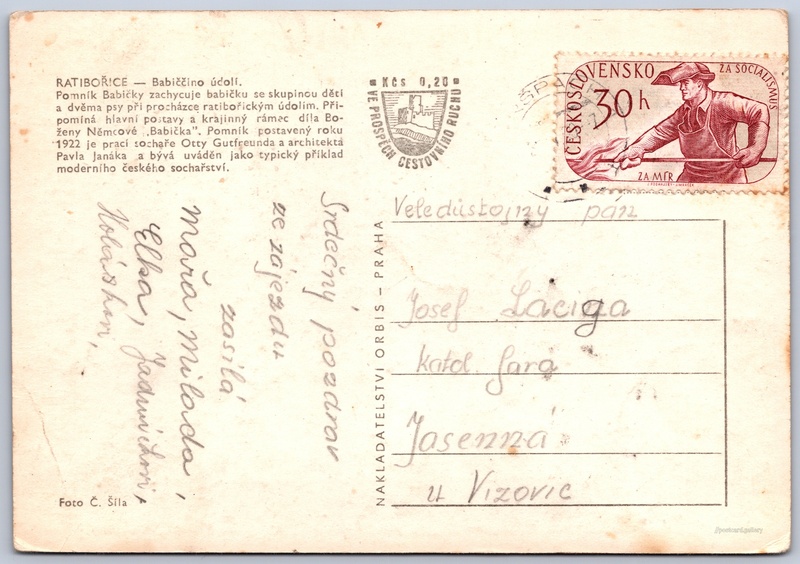 RATIBOŘICE — Babiččino údolí.
Pomník Babičky zachycuje babičku se skupinou dětí
a dvěma psy při procházce ratibořickým údolím. Při-
pomíná hlavní postavy a krajinný rámec díla Bo-
ženy Němcové „Babička". Pomník postavený roku
1922 je prací sochaře Otty Gutfreunda a architekta
Pavla Janáka a bývá uváděn jako typický příklad
moderního českého sochařství.
Kčs 0,20
VE PROSPĚCH CESTOVNÍHO RUCHU
ČESKOSLOVENSKO
ZA SOCIALISMUS
30h
ZA MÍR
Srdečný pozdrav
ze zájezdu
zasílá
Mařa, Milada,
Elka,
NAKLADATELSTVÍ ORBIS – PRAHA
Veledůstojný pán
Josef Láciga
Katol. fara
Jasenná
u Vizovic
Foto Č. Šíla